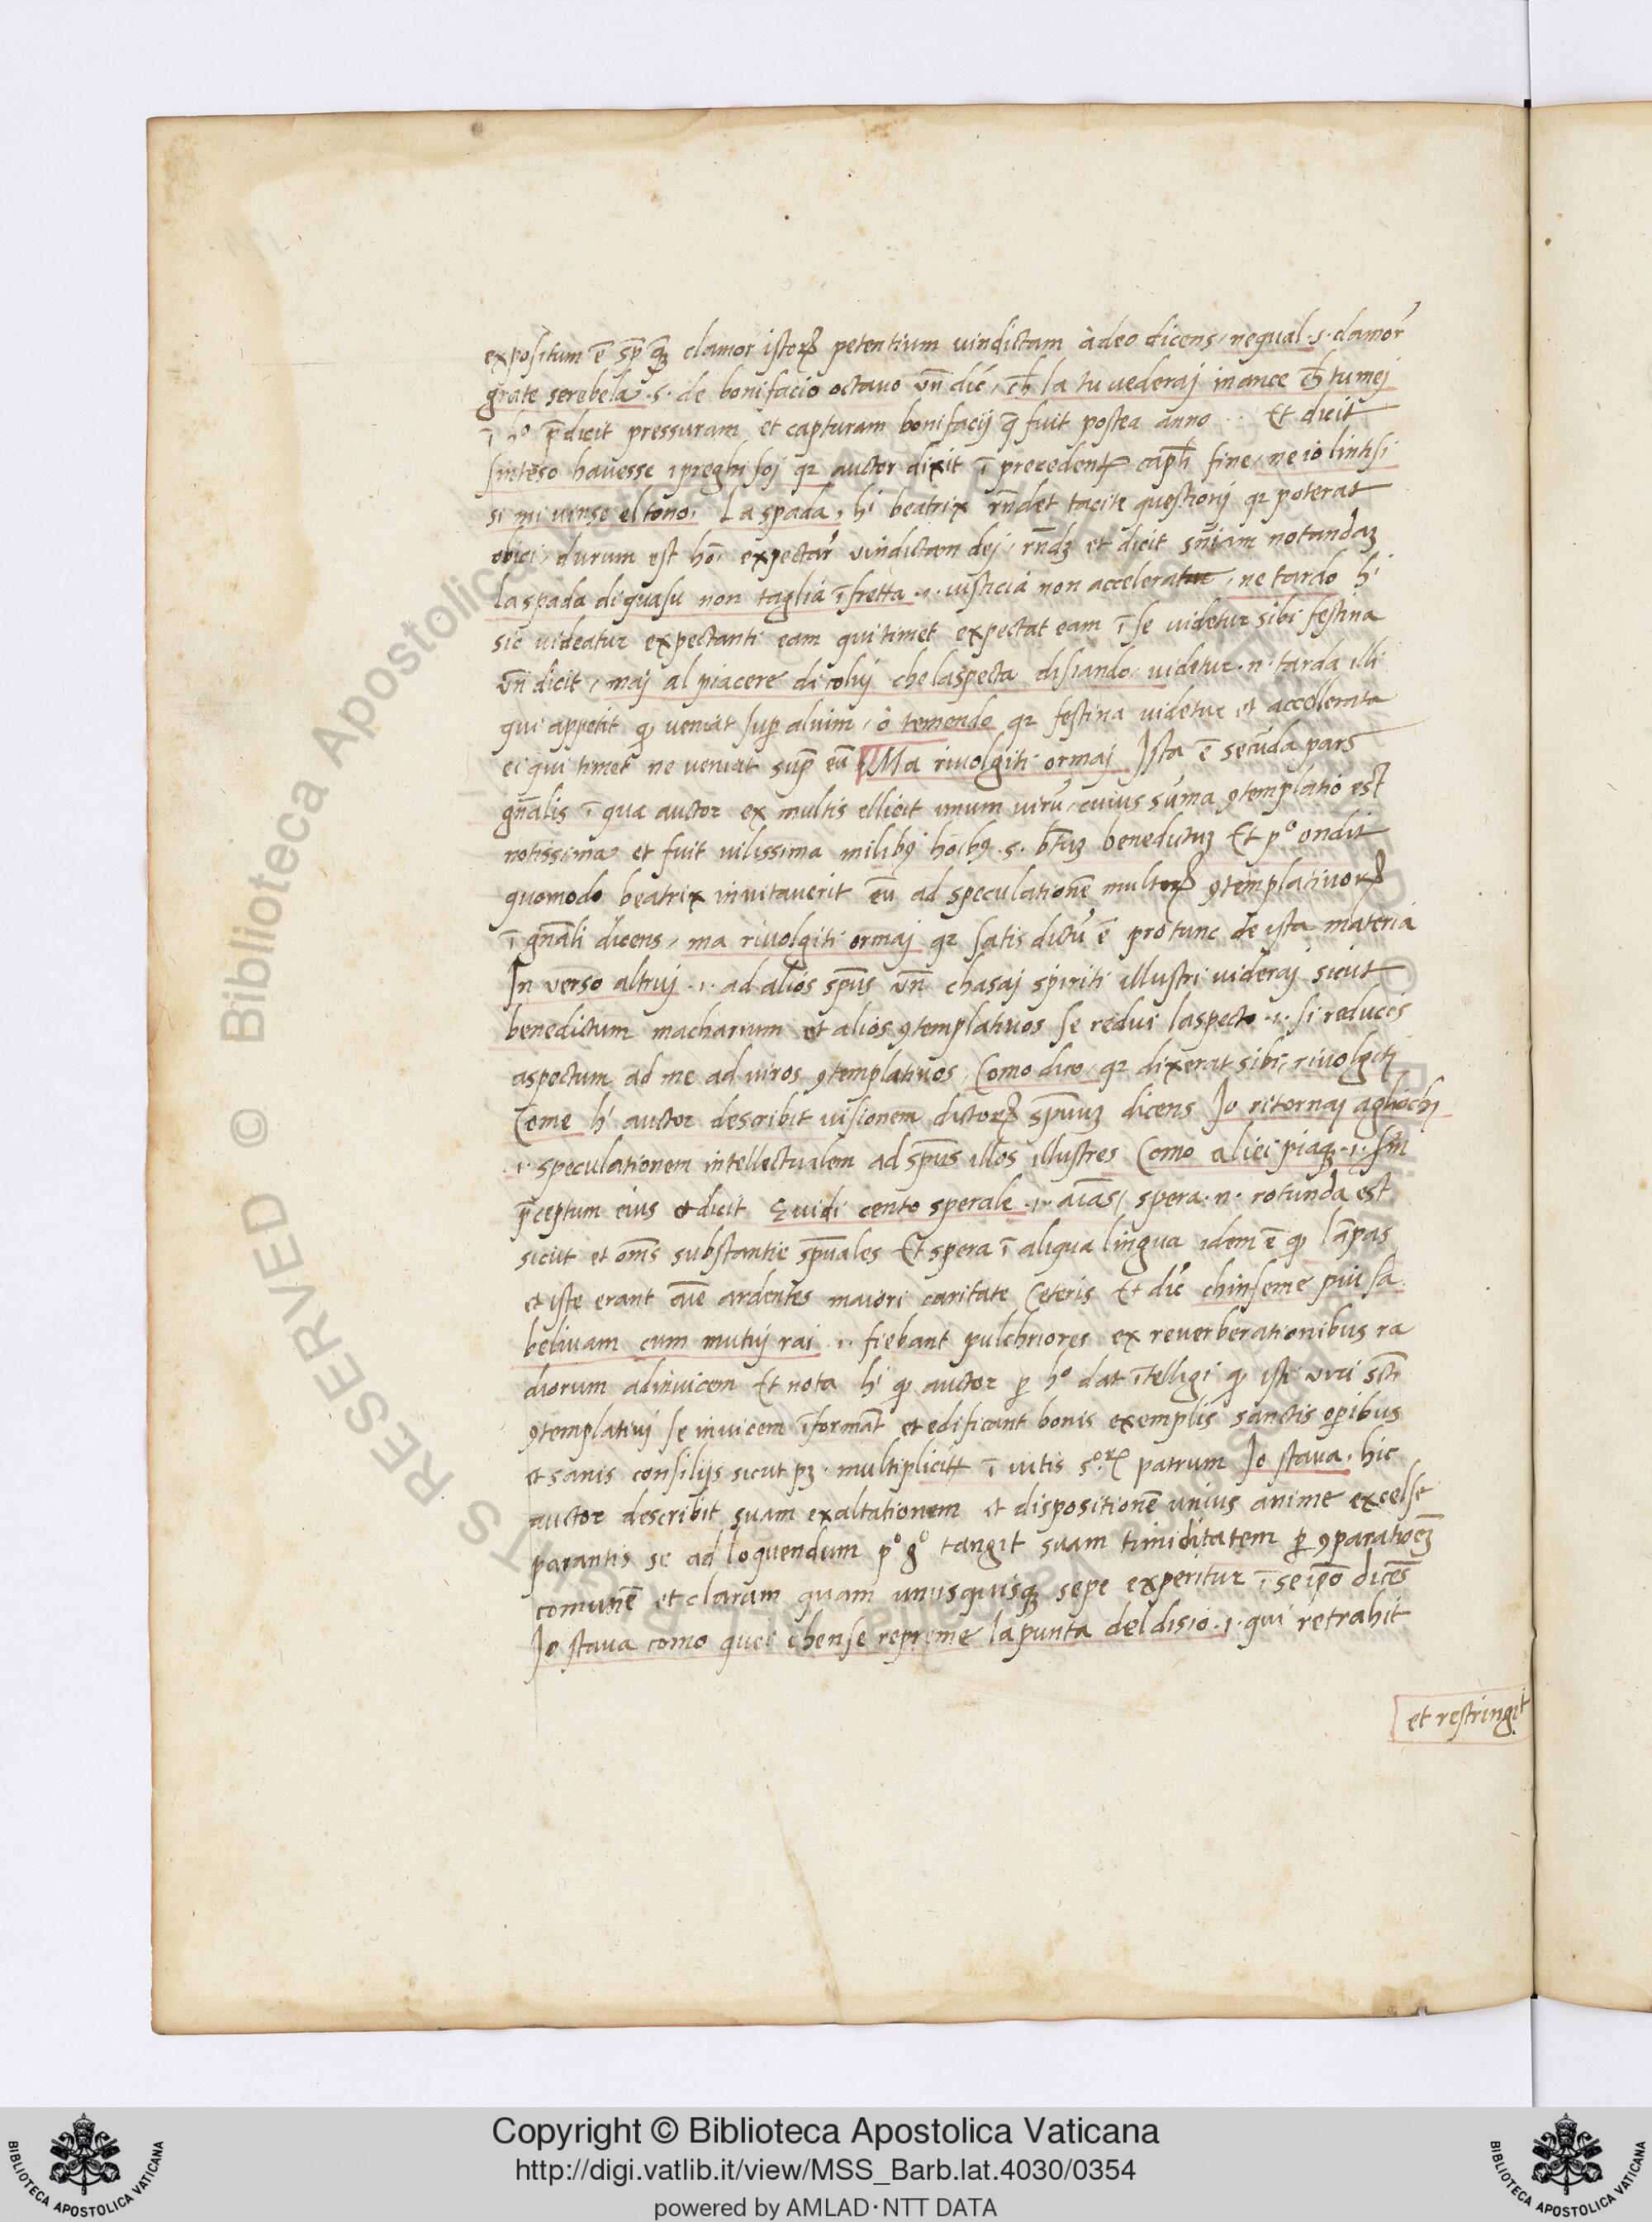 expositum ē sp̄ qꝫ clamor istoꝝ petentium vindictam à deo dicens, nequal .s. clamor
grate serebela .s. de bonifacio octavo vn̄ dic̄, ch̄ la tu vederaj inance ch̄ tu mej
ī hͦ p̄dicit pressuram et capturam bonifacij q̄ fuit postea anno ·· Et dicit
sinteso havesse i preghi soj qꝛ auctor dixit ī precedent capl̄i fine, ne io lintesi
si mi uinse el tono, La spada, hⁱ beatrix rn̄det tacite questionj qꝛ poterat
obici, durum est ho. expectar vindictam dej, rn̄dꝫ et dicit sn̄iam notandaꝫ
la spada di quasu non taglia ī fretta .i. iusticia non acceleratur, ne tardo hⁱ
sic videatur expectanti eam qui timet expectat eam ī se videtur sibi festina
vn̄ dicit, maj al piacere di coluj che laspecta disiando, videtur .n. tarda illi
qui appetit ꝙ veniat sup aluim, ò temendo qꝛ festina videtur et accellerata
ei qui timet ne veniat sup̄ eū Ma rivolgiti ormaj Ista ē secūda pars
gn̄alis ī qua auctor ex multis ellicit unum virū, cuius sūma ꝯtemplatio est
notissima et fuit vilissima milibꝫ hoībꝫ .s. btūꝫ benedictuꝫ Et pͦ ondit
quomodo beatrix invitaverit eū ad speculationē multoꝝ ꝯtemplativoꝝ
ī gn̄ali dicens, ma rivolgiti ormaj qꝛ satis dictū ē pro tunc de ista materia
In verso altruj .i. ad alios sp̄us vn̄ chasaj spiriti illustri viderai sicut
benedictum macharium et alios ꝯtemplativos se redui laspecto .i. si reducis
aspectum ad me ad viros ꝯtemplativos, Como dico, qꝛ dixerat sibi, rivolgiti
Come hⁱ auctor describit visionem dictoꝝ sp̄uuꝫ dicens Io ritornaj agliochi
.i. speculationem intellectualem ad sp̄us illos illustres Como a liei piaqꝫ .i. sm̄
p̄ceptum eius et dicit E vidi cento sperale .i. aīas, spera .n. rotunda est
sicut et oms̄ substantie sp̄uales Et spera ī aliqua lingua idem ē ꝙ lāpas
et iste erant aīe ardentes maiori caritate ceteris Et dic̄ chinseme piu sa
belivam cum mutuj rai .i. fiebant pulchriores ex reverberationibus ra
diorum adinvicem Et nota hⁱ ꝙ auctor ꝑ hͦ dat ītelligi ꝙ isti viri sc̄ti
ꝯtemplativj se invicem īformāt et edificant bonis exemplis sanctis oꝑibus
et sanis consilijs sicut pꝫ. multiplicit ī vitis s.oꝝ patrum Io stava, hic
auctor describit suam exaltationem et dispositionē unius anime excelse
parantis se ad loquendum pͦ gͦ tangit suam timiditatem ꝑ ꝯparatiōeꝫ
comunē et claram quam unusquisqꝫ sepe experitur ī seipō dicēs
Io stava como quel chense repreme la punta del disio .i. qui retrahit
et restringit
© Biblioteca Apostolica Vaticana
RESERVED
Copyright © Biblioteca Apostolica Vaticana
http://digi.vatlib.it/view/MSS_Barb.lat.4030/0354
powered by AMLAD·NTT DATA
BIBLIOTECA APOSTOLICA VATICANA
BIBLIOTECA APOSTOLICA VATICANA